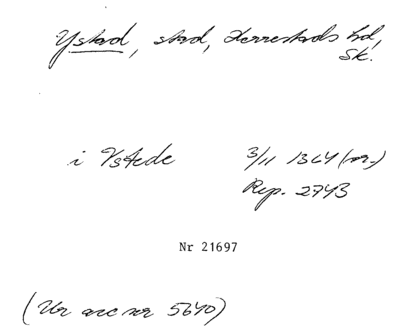 Ystad, stad, Herrestads hd,
Sk.
i Ystede 3/11 1364 (or.)
Rep. 2743
Nr 21697
(Ur acc nr 5640)